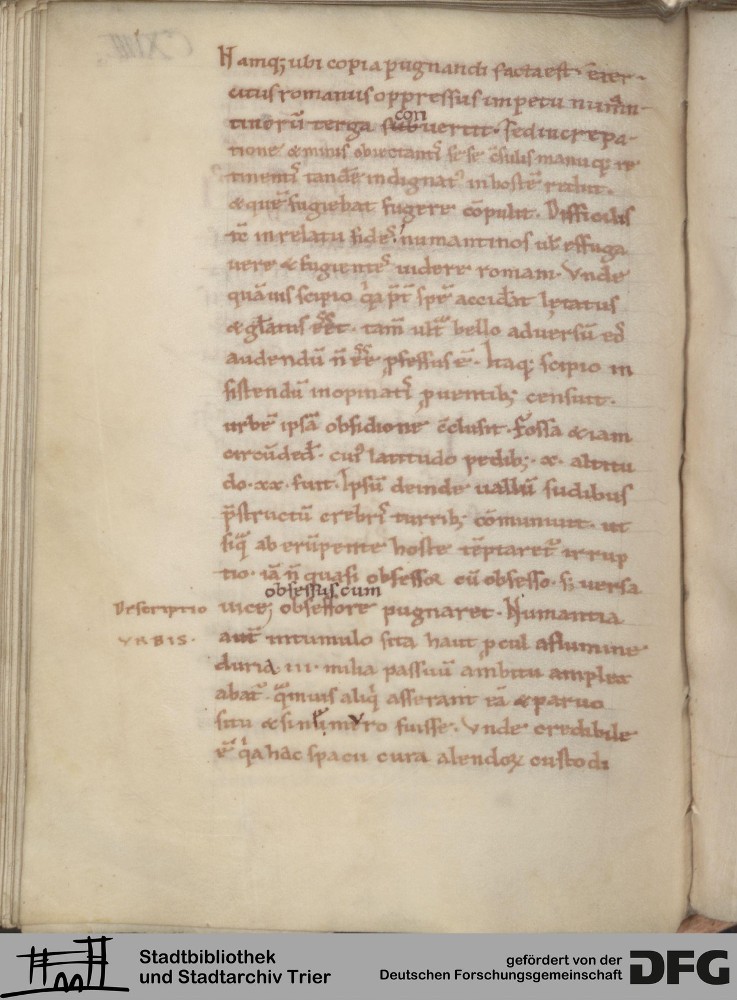 CXIIII
Namq; ubi copia pugnandi facta est exer-
citus romanus oppressus impetu numan-
tinorū terga subuertit. Sed increpa-
con
tione & minis obiectantis sese cōsulis manuq; re
tinentis tandē indignatus in hostē rediit.
& quē fugiebat fugere cōpulit. Difficilis
in relatu fides. numantinos & effuga
uere & fugientes uidere romani. Vnde
quāuis scipio q̄a p̄t spē acciderat lętatus
& gl̄atus tam̄ ult bello aduersū eos
audendū n̄ ēē p̄fessus ē. Itaq; scipio in
sistendū inopinatis puentib; censuit.
urbē ipsā obsidione cōclusit. Fossa &iam
circūded. cui' latitudo pedib; x. altitu
do xx. fuit. Ipsū deinde uallū sudibus
p̄structū crebris turrib; cōmuniuit. ut
siq̄ ab erūpente hoste tēptaret irrup
tio. iā n̄ quasi obsessor cū obsesso. s; uersa
obsessus cum
uice; obsessore pugnaret. Numantia
Descriptio
VRBIS.
aut in tumulo sita haut pcul a flumine
duria. III. milia passuū ambitu amplex
abat. q̄muis aliq̄ asserant eā & paruo
situ & sine muro fuisse. Vnde credibile
ē q̄a hāc spacii cura alendorꝝ custodi
Stadtbibliothek
und Stadtarchiv Trier
gefördert von der
Deutschen Forschungsgemeinschaft
DFG